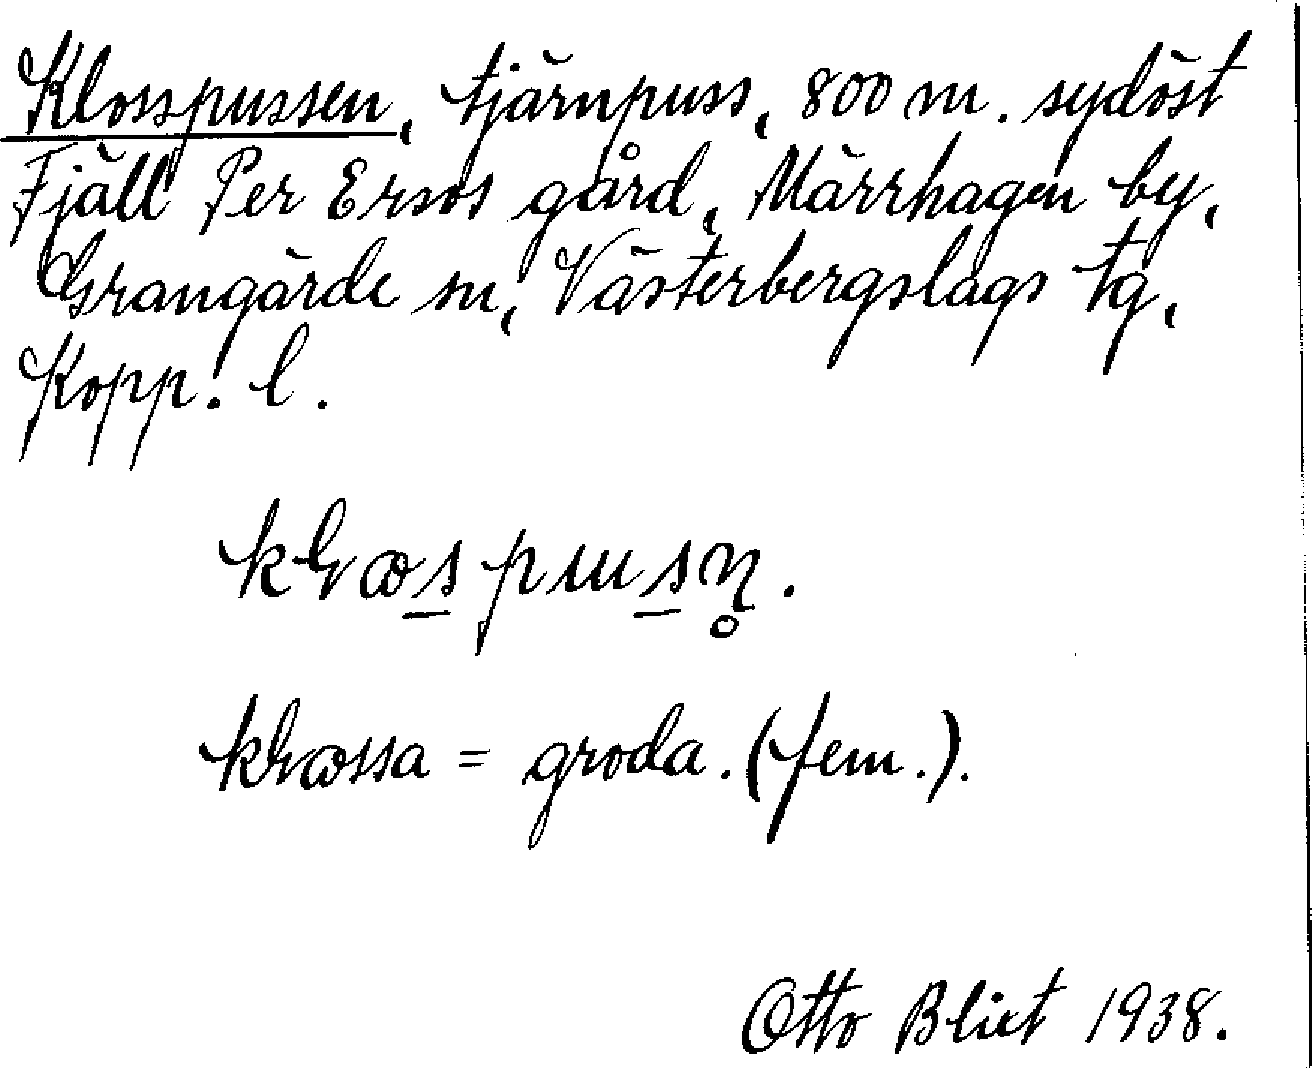 Klosspussen, tjärnpuss, 800 m. sydöst
Fjäll Per Ersos gård, Märrhagen by,
Grangärde sn, Västerbergslags tg,
Kopp. l.
kɬɷs̲pɯs̲n̥.
kɬɷssa = groda. (fem.).
Otto Blixt 1938.